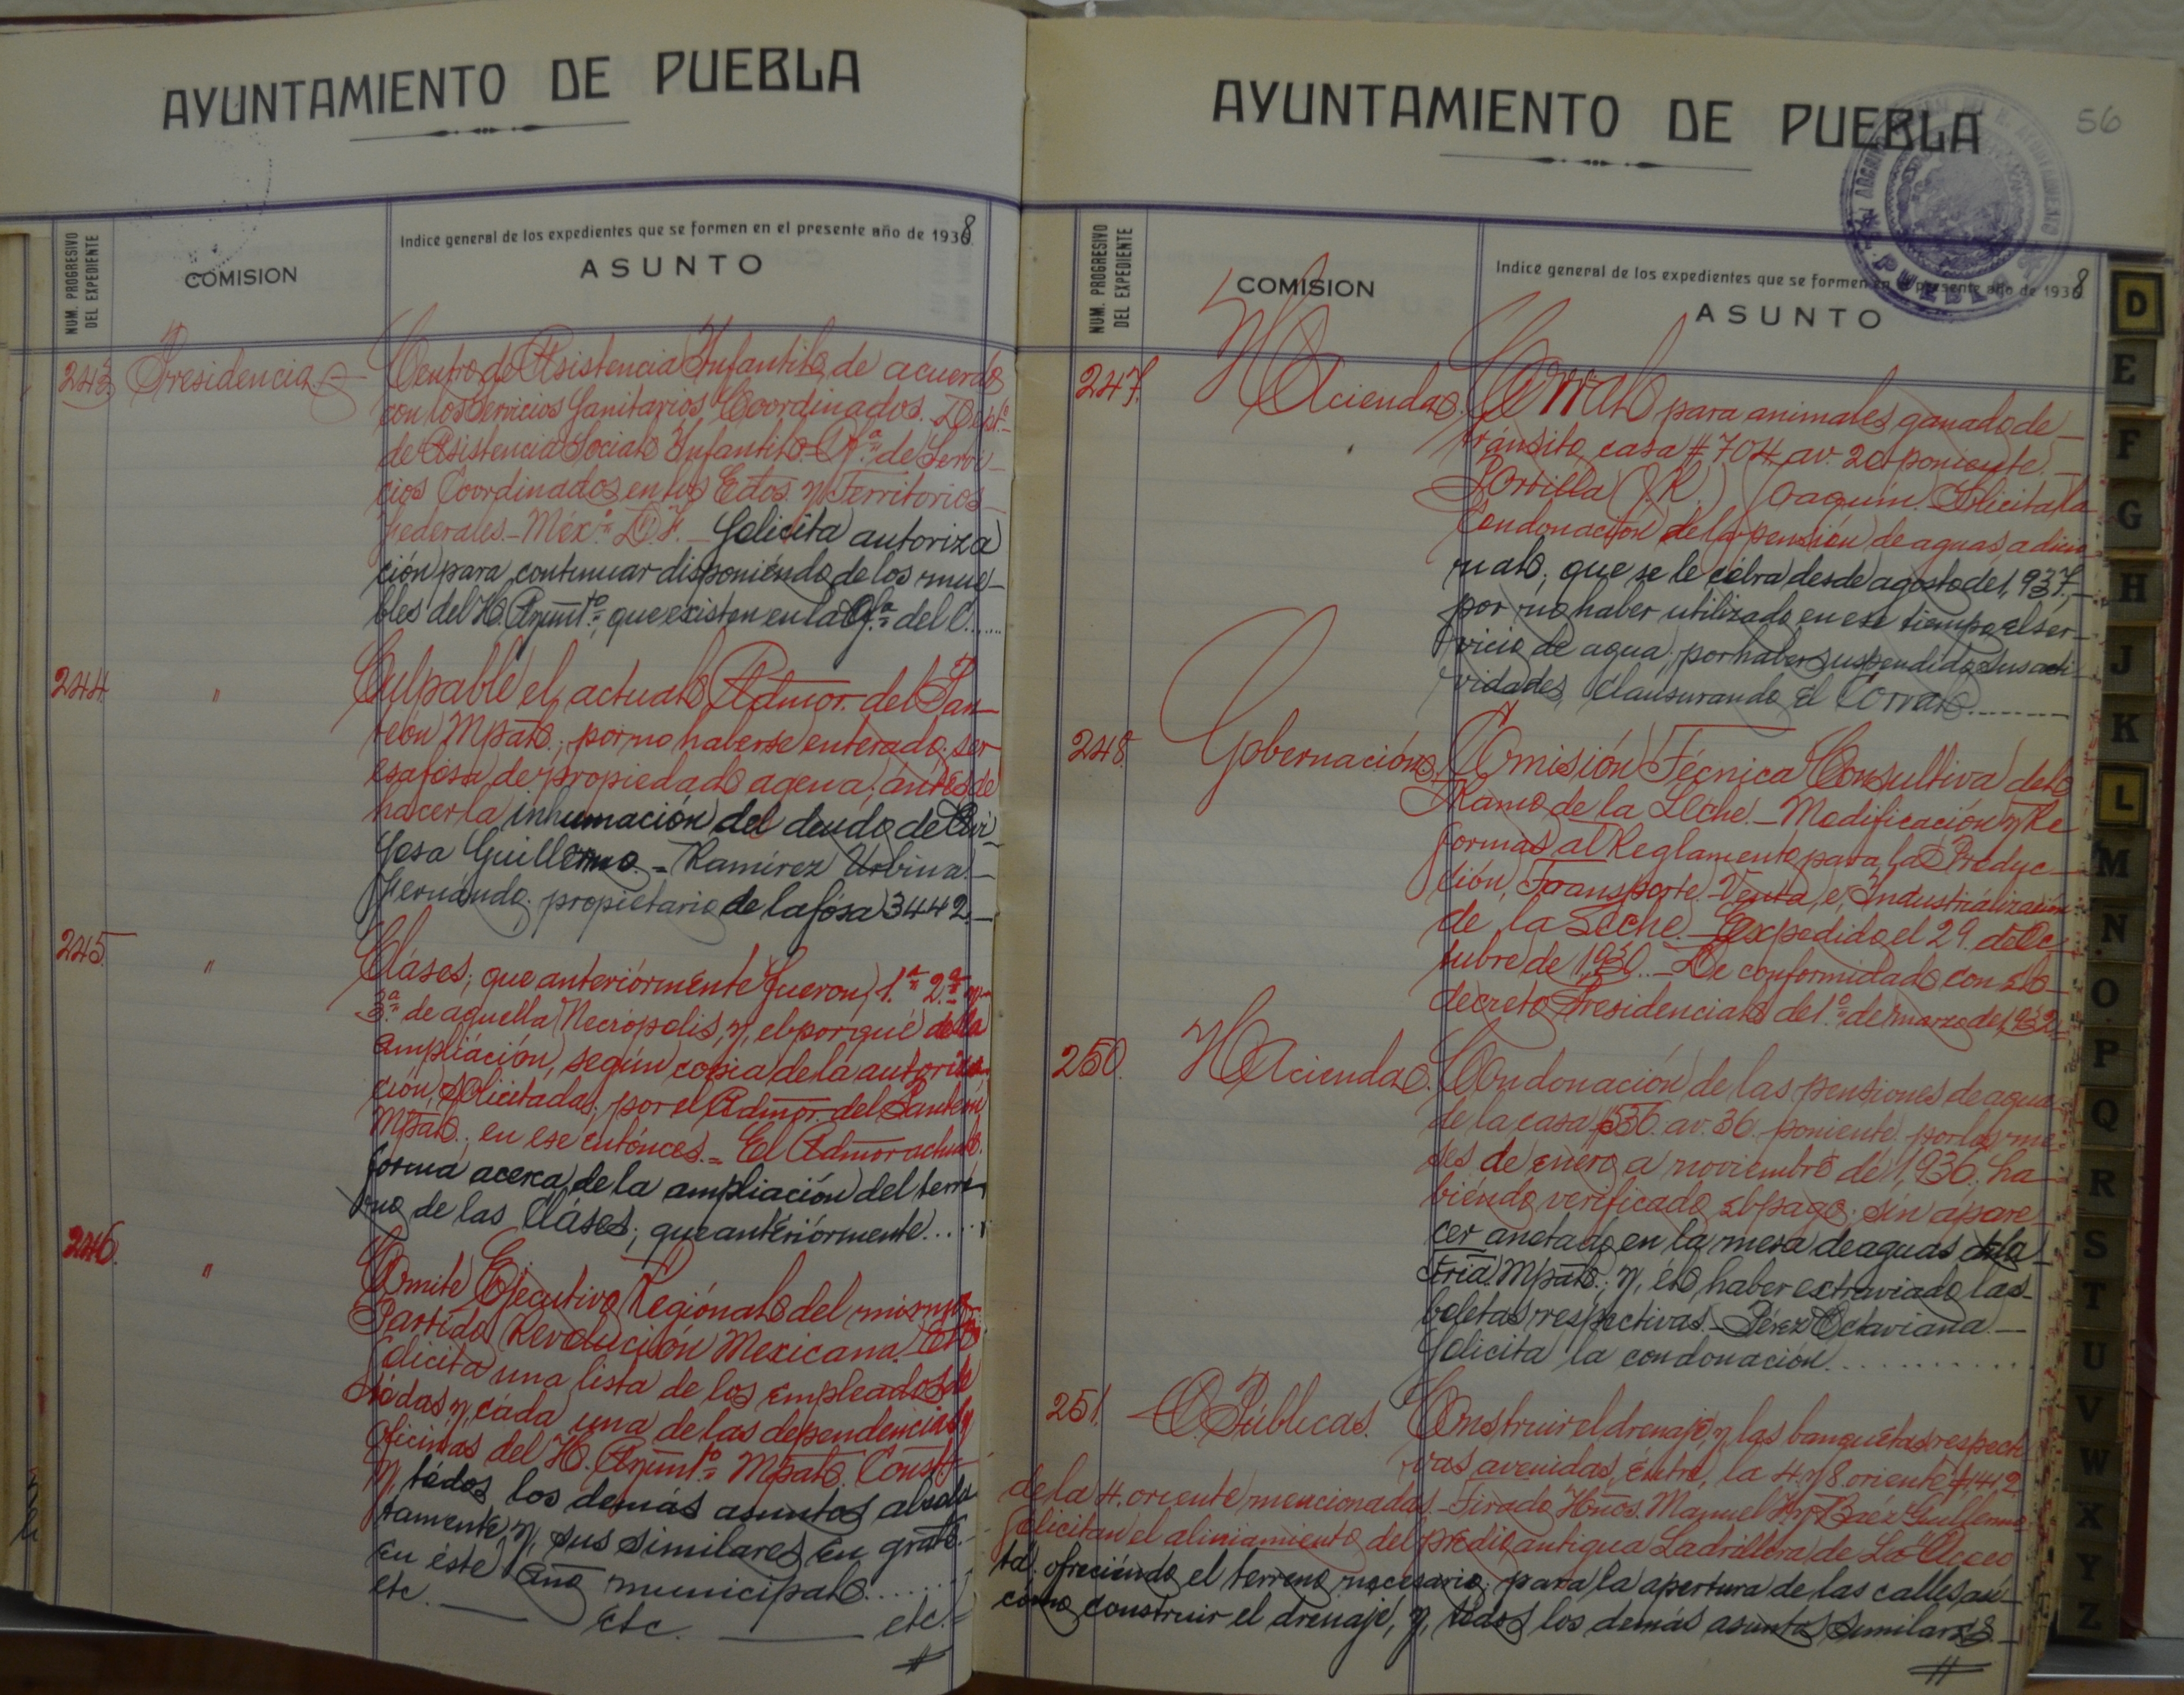 AYUNTAMIENTO DE PUEBLA
NUM. PROGRESIVO
DEL EXPEDIENTE
COMISION
Indice general de los expedientes que se formen en el presente año de 1938.
ASUNTO
243. Presidencia. Centro de Asistencia Infantil, de acuerdo
con los Servicios Sanitarios Coordinados. Dept.º
de Asistencia Social Infantil. Of.ª de Servi-
cios Coordinados en los Edos. y Territorios
Federales.- Méx.º D.F.- Solicita autoriza
ción para continuar disponiéndo de los mue-
bles del H. Ayunt.º, que existen en la Of.ª del C......
244. " Culpable el actual Admor. del Pan-
teón Mpal., por no haberse enterado, ser
esa fósa de propiedad agena, ántes de
hacer la inhumación del deudo de
Guillermo.= Ramírez Urbina.-
Fernándo. propietario de la fósa 3442.-
245. " Cláses, que anteriórmente fueron, 1.ª 2.ª y
3.ª de aquella Necrópolis, y, el porqué de la
ampliáción, según copia de la autoriza
ción, solicitadas, por el Admor. del Panteón
Mpal., en ese entónces.= El Admor actual.
forma acerca de la ampliación del terre
no de las Cláses, que antériórmente.....
246. " Comite Ejecutivo Regiónal del mismo
Partido Revolución Mexicana.
Solicita una lista de los empleados de
tódas y, cáda una de las dependencias y
oficinas del H. Ayunt.º Mpal. Const.
y, tódos los demás asuntos absolu
tamente, y, sus similares, en gral.-
en éste Año municipal.......
etc. — etc. — etc.=
AYUNTAMIENTO DE PUEBLA
56
PUEBLA
NUM. PROGRESIVO
DEL EXPEDIENTE
COMISION
Indice general de los expedientes que se formen en el presente año de 1938.
ASUNTO
247. Hacienda. Corral para animales, ganado de-
tránsito, casa # 704. av. 20 poniente.-
Sorvilla (R.) Joaquín. Solicita la
Condonación de la pensión de aguas adicio
nal, que se le cóbra desde agosto de 1,937,-
por no haber utilizado en ese tiempo, el ser-
vicio de agua, por haber suspendido sus acti-
vidades, clausurando el Córral.........
248. Gobernación. Comisión Técnica Consultiva del
Ramo de la Leche.- Modificación y Re
formas al Reglamento, para la Produc-
ción, Transporte, Venta, e, Industrialización
de la Leche.- Expedido el 29. de Oc-
tubre de 1,930.- De conformidad con el
decreto Presidencial del 1.º de marzo de 1,932.
250. Hacienda. Condonación de las pensiones de agua
de la casa 536. av. 36. poniente. por los me-
ses de enero a noviembre de 1,936, ha-
biéndo verificado el pago. sin apare-
cer anotado, en la mesa de aguas de la
Tría. Mpal., y, él haber extraviado las-
boletas respectivas.- Pérez Octaviana.-
Solicita la condonación.............
251. O. Públicas. Construir el drenaje, y, las banquetas respecti
vas avenidas, éntre, la 4. y 8. oriente # 1412
de la 4. oriente mencionadas.- Tirado Hnos. Manuel H. y Baéz Guillermo
Solicitan el aliniamiento del prédio, antigua Ladrillera de La
ofreciéndo el terreno necesario, para la apertura de las calles, así-
cómo construir el drenaje, y, todos los demás asuntos similares.-
D
E
F
G
H
J
K
L
M
N
O
P
Q
R
S
T
U
V
W
X
Y
Z